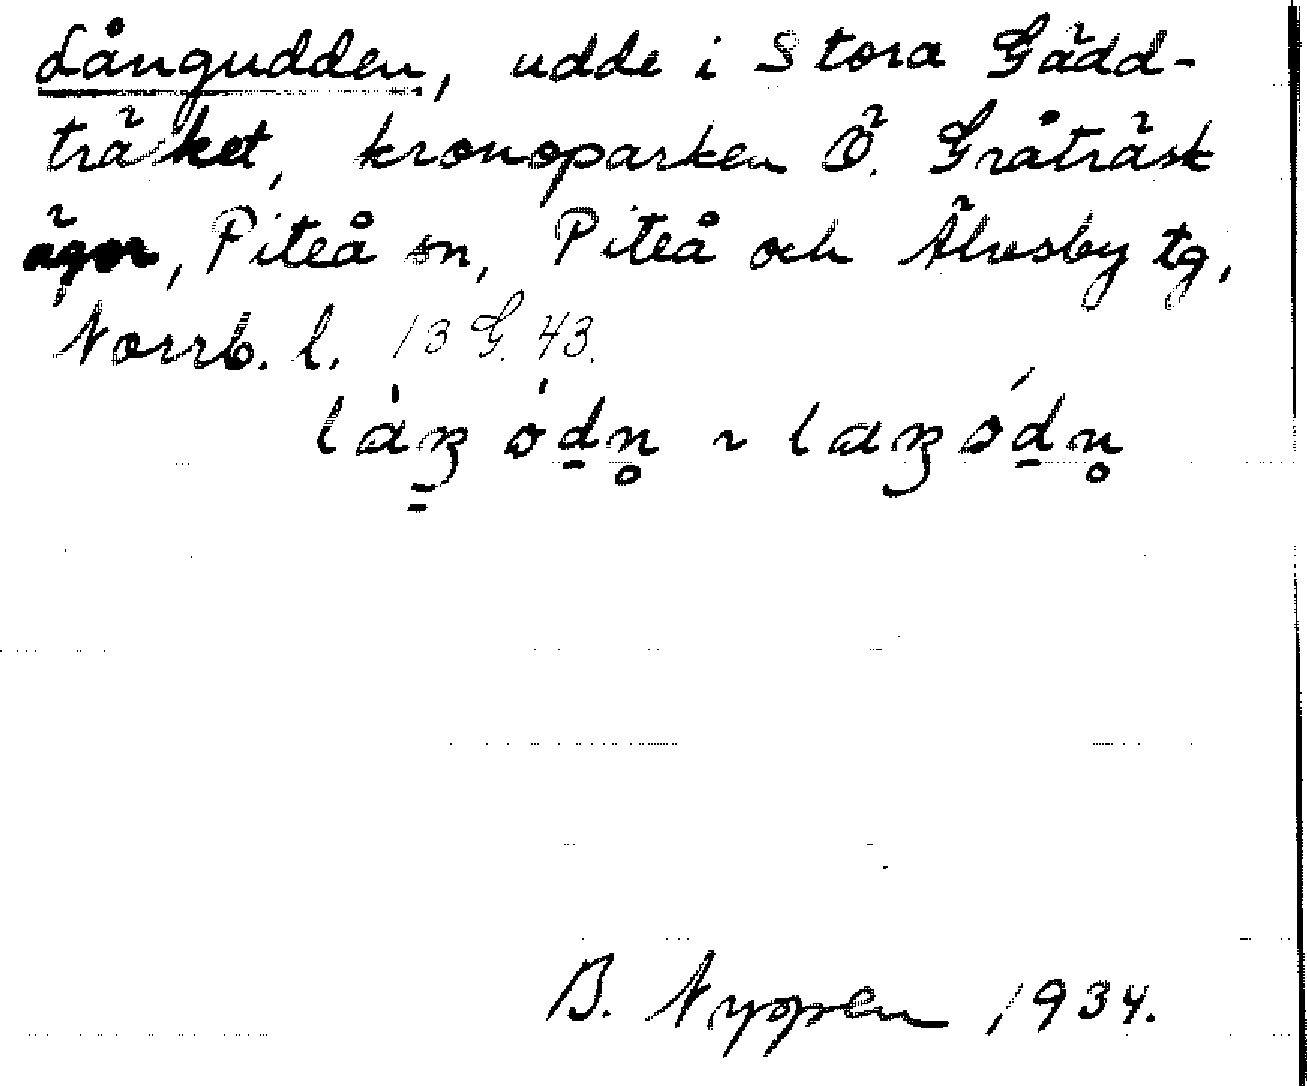 Långudden, udde i Stora Gädd-
träket, kronoparken Ö. Gråträsk
ägor, Piteå sn, Piteå och Älvsby tg,
Norrb. l. 13 G. 43.
B. Nyppen 1934.